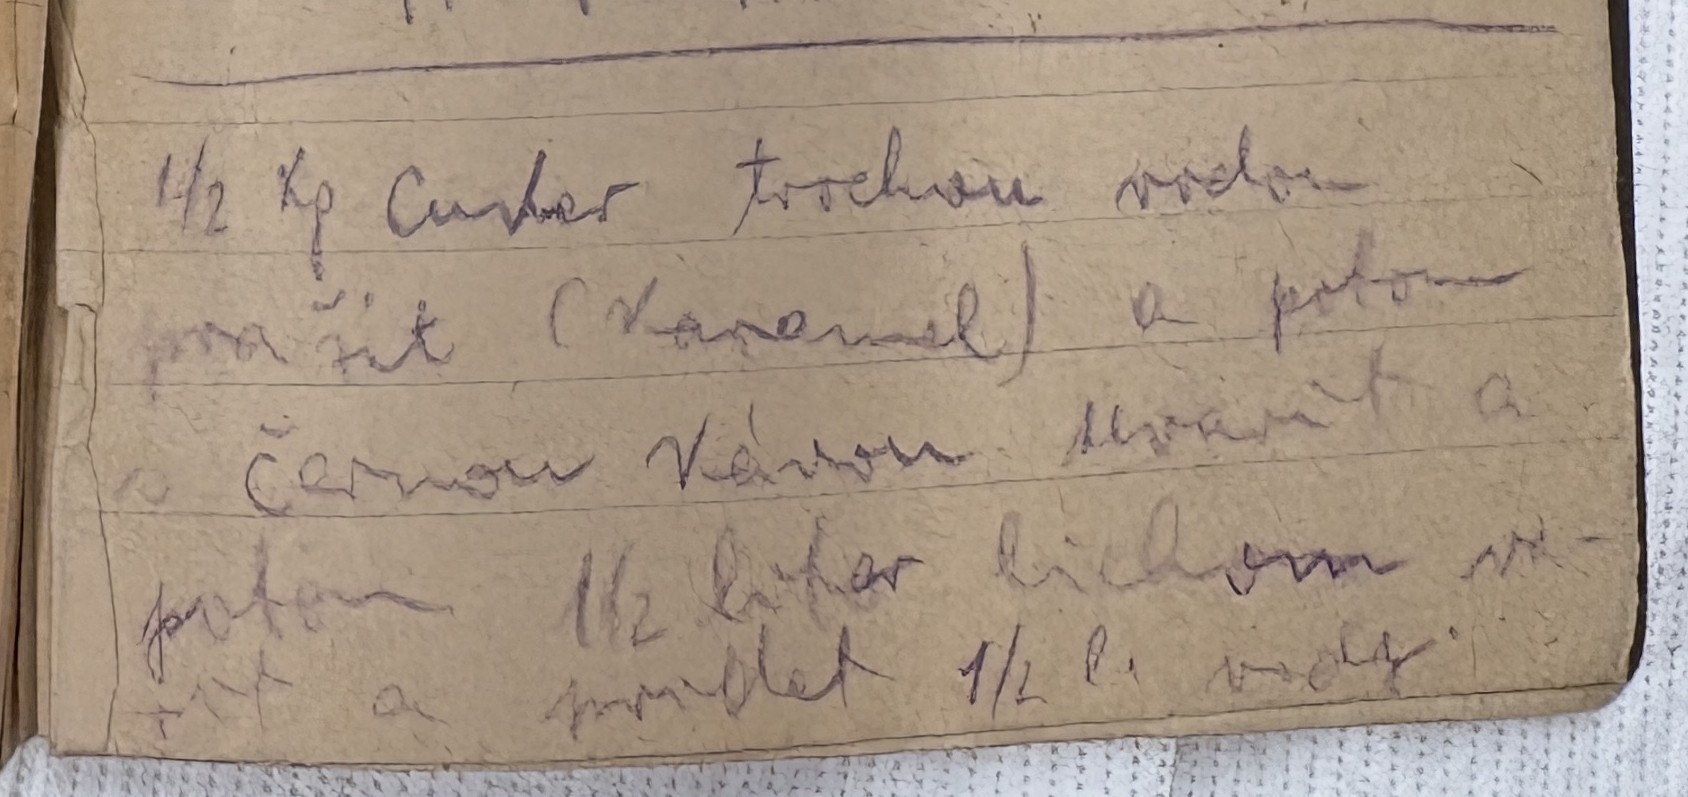 1/2 Kg Cuker trochou vodou
pražit (Karamel) a potom
s černou Kávou uvarit a
potom 1/2 liter lichom
a pridet 1/2 l. vody.